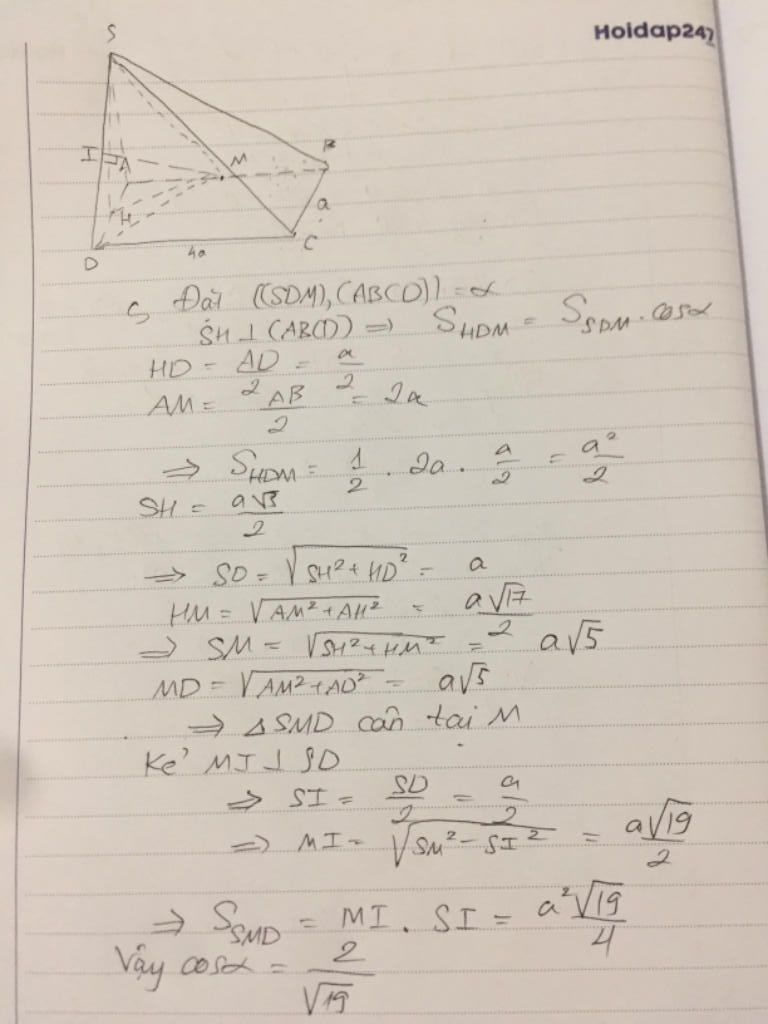 Hoidap247
S
I
A
M
B
H
a
D
4a
C
Đặt ((SDM), (ABCD)) = α
SH ⊥ (ABCD) => S_HDM = S_SDM . cosα
HD = AD/2 = a/2
AM = AB/2 = 2a
=> S_HDM = 1/2 . 2a . a/2 = a²/2
SH = a√3/2
=> SD = √(SH² + HD²) = a
HM = √(AM² + AH²) = a√17/2
=> SM = √(SH² + HM²) = a√5
MD = √(AM² + AD²) = a√5
=> ΔSMD cân tại M
Kẻ MI ⊥ SD
=> SI = SD/2 = a/2
=> MI = √(SM² - SI²) = a√19/2
=> S_SMD = MI . SI = a²√19/4
Vậy cosα = 2/√19